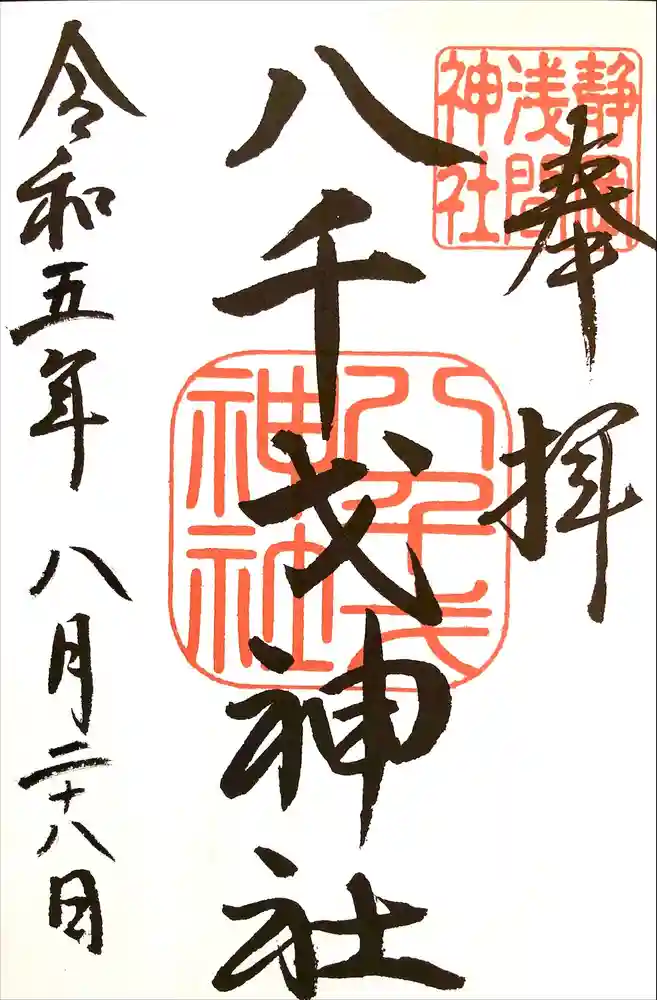 奉拝
静岡
浅間
神社
八千戈神社
八千戈
神社
令和五年 八月二十八日